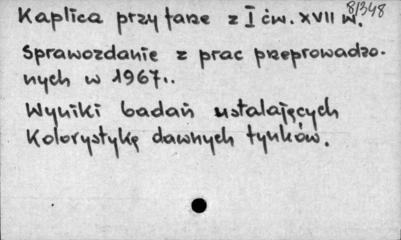 8/348
Kaplica przy farze z I ćw. XVII w.
Sprawozdanie z prac przeprowadzo-
nych w 1967..
Wyniki badań ustalających
Kolorystykę dawnych tynków.